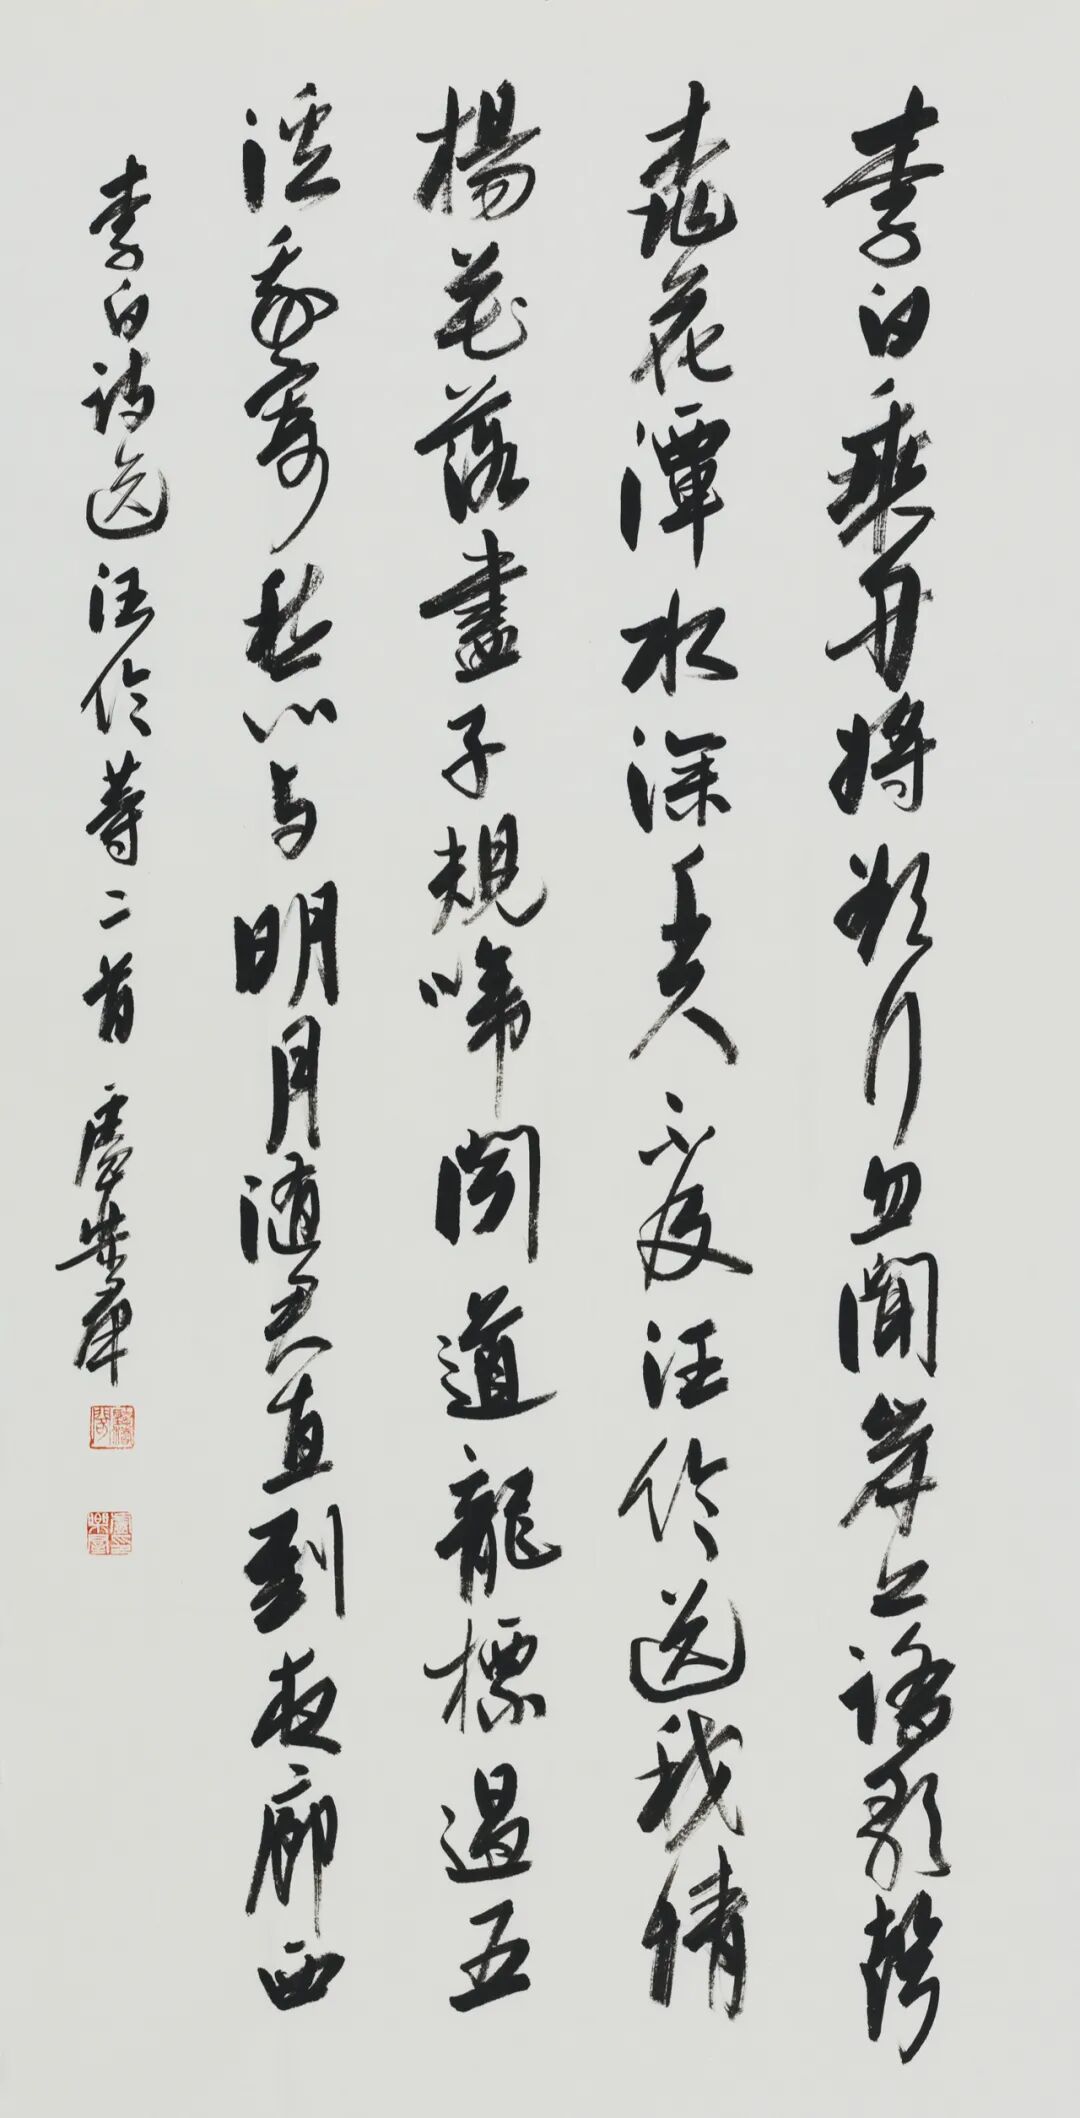 李白乘舟將欲行忽聞岸上踏歌聲
桃花潭水深千尺不及汪倫送我情
楊花落盡子規啼聞道龍標過五
溪我寄愁心与明月随君直到夜廊西
李白詩送汪倫等二首 盧